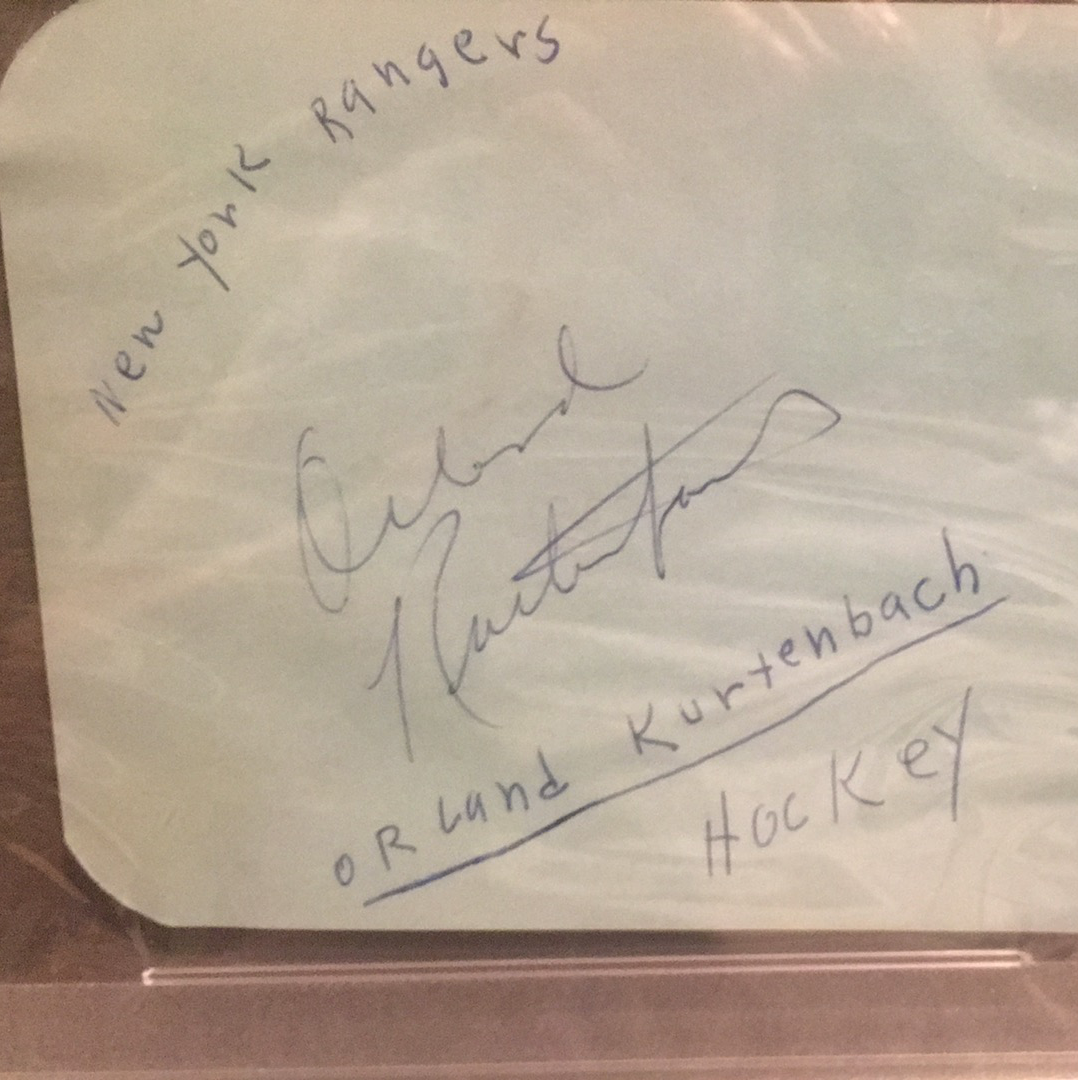 New York Rangers
Orland
Kurtenbach
ORLand Kurtenbach
HockEy